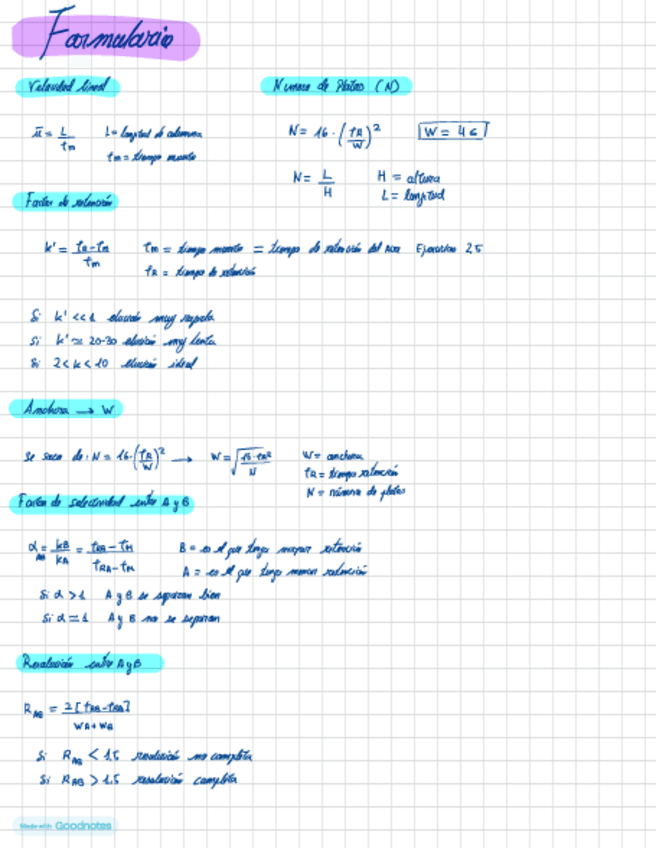 Formulario
Velocidad lineal
ū = L / tm
L = longitud de columna
tm = tiempo muerto
Numero de Platos (N)
N = 16 · (tR / W)²
W = 4σ
N = L / H
H = altura
L = longitud
Factor de retención
k' = tR - tm / tm
tm = tiempo muerto = tiempo de retención del Ejercicio 2.5
tR = tiempo de retención
Si k' << 1 elución muy rapida
Si k' ≃ 20-30 elución muy lenta
Si 2 < k < 10 elución ideal
Anchura → W
Se saca de: N = 16 · (tR / W)² → W = √(16 · tR² / N)
W = anchura
tR = tiempo retención
N = número de platos
Factor de selectividad entre A y B
αAB = kB / kA = tRB - tM / tRA - tM
B = es el que tenga mayor retención
A = es el que tenga menor retención
Si α > 1 A y B se separan bien
Si α = 1 A y B no se separan
Resolución entre A y B
RAB = 2 [tRB - tRA] / WA + WB
Si RAB < 1,5 resolución no completa
Si RAB > 1.5 resolución completa
Made with Goodnotes